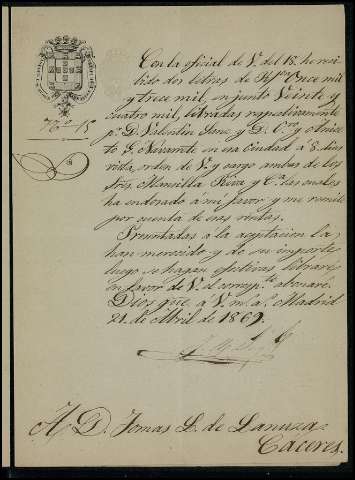 Nº 15
Con la oficial de V. del 18 he reci
bido dos letras de Once mil
y trece mil, en junto Veinte y
cuatro mil, libradas respectivamente
pr. D. Valentin Sanz y D. y
Navarrete en esa ciudad á 8 dias
vista, orden de V. y cargo ambas de los
Sres. Mansilla Riva y Cª. las cuales
ha endosado á mi favor y me remite
por cuenta de sus rentas.
Presentadas á la aceptacion la
han merecido y de su importe
luego se hagan efectivas librará
en favor de V. el correspte. abonaré.
Dios gue. á V. m. a. Madrid
21 de Abril de 1869.
A D. Tomas L. de Lanuza
Caceres.